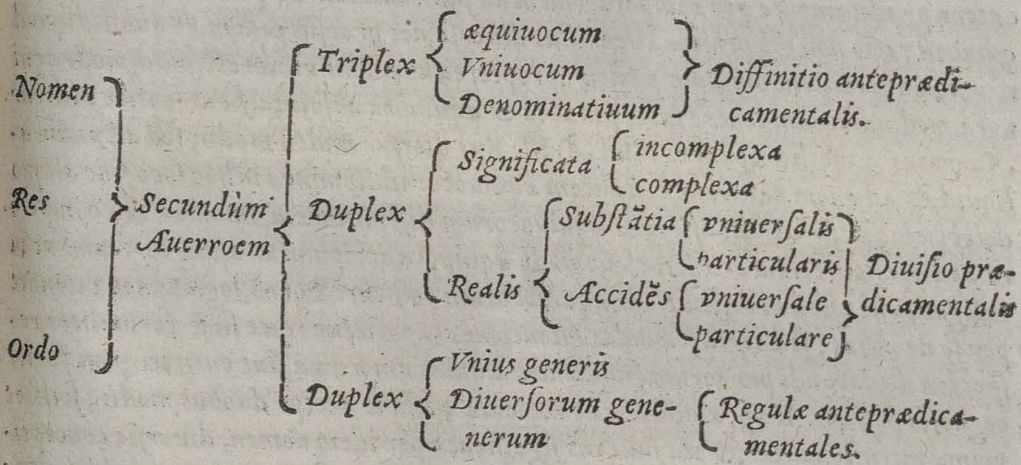 Nomen
Res
Ordo
Secundùm
Auerroem
Triplex
æquiuocum
Vniuocum
Denominatiuum
Diffinitio anteprædi-
camentalis.
Duplex
Significata
incomplexa
complexa
Realis
Substãtia
vniuersalis
particularis
Accidẽs
vniuersale
particulare
Diuisio præ-
dicamentalis
Duplex
Vnius generis
Diuersorum gene-
nerum
Regulæ antepredica-
mentales.